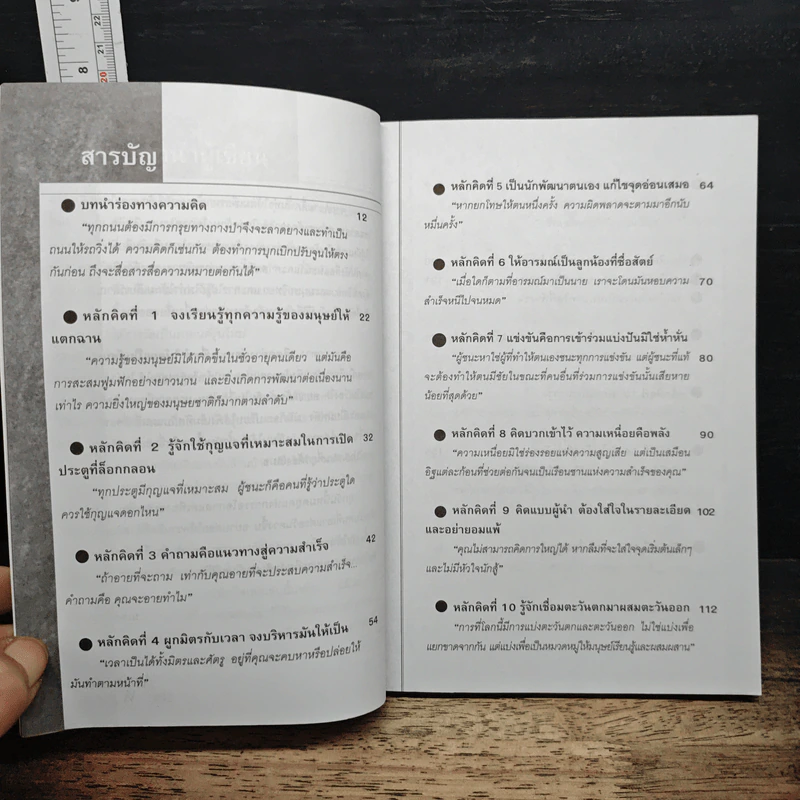 สารบัญ
บทนำร่องทางความคิด 12
"ทุกถนนต้องมีการกรุยทางถางป่าจึงจะลาดยางและทำเป็น
ถนนให้รถวิ่งได้ ความคิดก็เช่นกัน ต้องทำการบุกเบิกปรับจูนให้ตรง
กันก่อน ถึงจะสื่อสารสื่อความหมายต่อกันได้"
หลักคิดที่ 1 จงเรียนรู้ทุกความรู้ของมนุษย์ให้ 22
แตกฉาน
"ความรู้ของมนุษย์มิได้เกิดขึ้นในชั่วอายุคนเดียว แต่มันคือ
การสะสมฟูมฟักอย่างยาวนาน และยิ่งเกิดการพัฒนาต่อเนื่องนาน
เท่าไร ความยิ่งใหญ่ของมนุษยชาติก็มากตามลำดับ"
หลักคิดที่ 2 รู้จักใช้กุญแจที่เหมาะสมในการเปิด 32
ประตูที่ล็อกกลอน
"ทุกประตูมีกุญแจที่เหมาะสม ผู้ชนะก็คือคนที่รู้ว่าประตูใด
ควรใช้กุญแจดอกไหน"
หลักคิดที่ 3 คำถามคือแนวทางสู่ความสำเร็จ 42
"ถ้าอายที่จะถาม เท่ากับคุณอายที่จะประสบความสำเร็จ...
คำถามคือ คุณจะอายทำไม"
หลักคิดที่ 4 ผูกมิตรกับเวลา จงบริหารมันให้เป็น 54
"เวลาเป็นได้ทั้งมิตรและศัตรู อยู่ที่คุณจะคบหาหรือปล่อยให้
มันทำตามหน้าที่"
หลักคิดที่ 5 เป็นนักพัฒนาตนเอง แก้ไขจุดอ่อนเสมอ 64
"หากยกโทษให้ตนหนึ่งครั้ง ความผิดพลาดจะตามมาอีกนับ
หมื่นครั้ง"
หลักคิดที่ 6 ให้อารมณ์เป็นลูกน้องที่ซื่อสัตย์
"เมื่อใดก็ตามที่อารมณ์มาเป็นนาย เราจะโดนมันหอบความ 70
สำเร็จหนีไปจนหมด"
หลักคิดที่ 7 แข่งขันคือการเข้าร่วมแบ่งปันมิใช่ห้ำหั่น
"ผู้ชนะหาใช่ผู้ที่ทำให้ตนเองชนะทุกการแข่งขัน แต่ผู้ชนะที่แท้ 80
จะต้องทำให้ตนมีชัยในขณะที่คนอื่นที่ร่วมการแข่งขันนั้นเสียหาย
น้อยที่สุดด้วย"
หลักคิดที่ 8 คิดบวกเข้าไว้ ความเหนื่อยคือพลัง 90
"ความเหนื่อยมิใช่ร่องรอยแห่งความสูญเสีย แต่เป็นเสมือน
อิฐแต่ละก้อนที่ช่วยต่อกันจนเป็นเรือนชานแห่งความสำเร็จของคุณ"
หลักคิดที่ 9 คิดแบบผู้นำ ต้องใส่ใจในรายละเอียด 102
และอย่ายอมแพ้
"คุณไม่สามารถคิดการใหญ่ได้ หากลืมที่จะใส่ใจจุดเริ่มต้นเล็กๆ
และไม่มีหัวใจนักสู้"
หลักคิดที่ 10 รู้จักเชื่อมตะวันตกมาผสมตะวันออก 112
"การที่โลกนี้มีการแบ่งตะวันตกและตะวันออก ไม่ใช่แบ่งเพื่อ
แยกขาดจากกัน แต่แบ่งเพื่อเป็นหมวดหมู่ให้มนุษย์เรียนรู้และผสมผสาน"